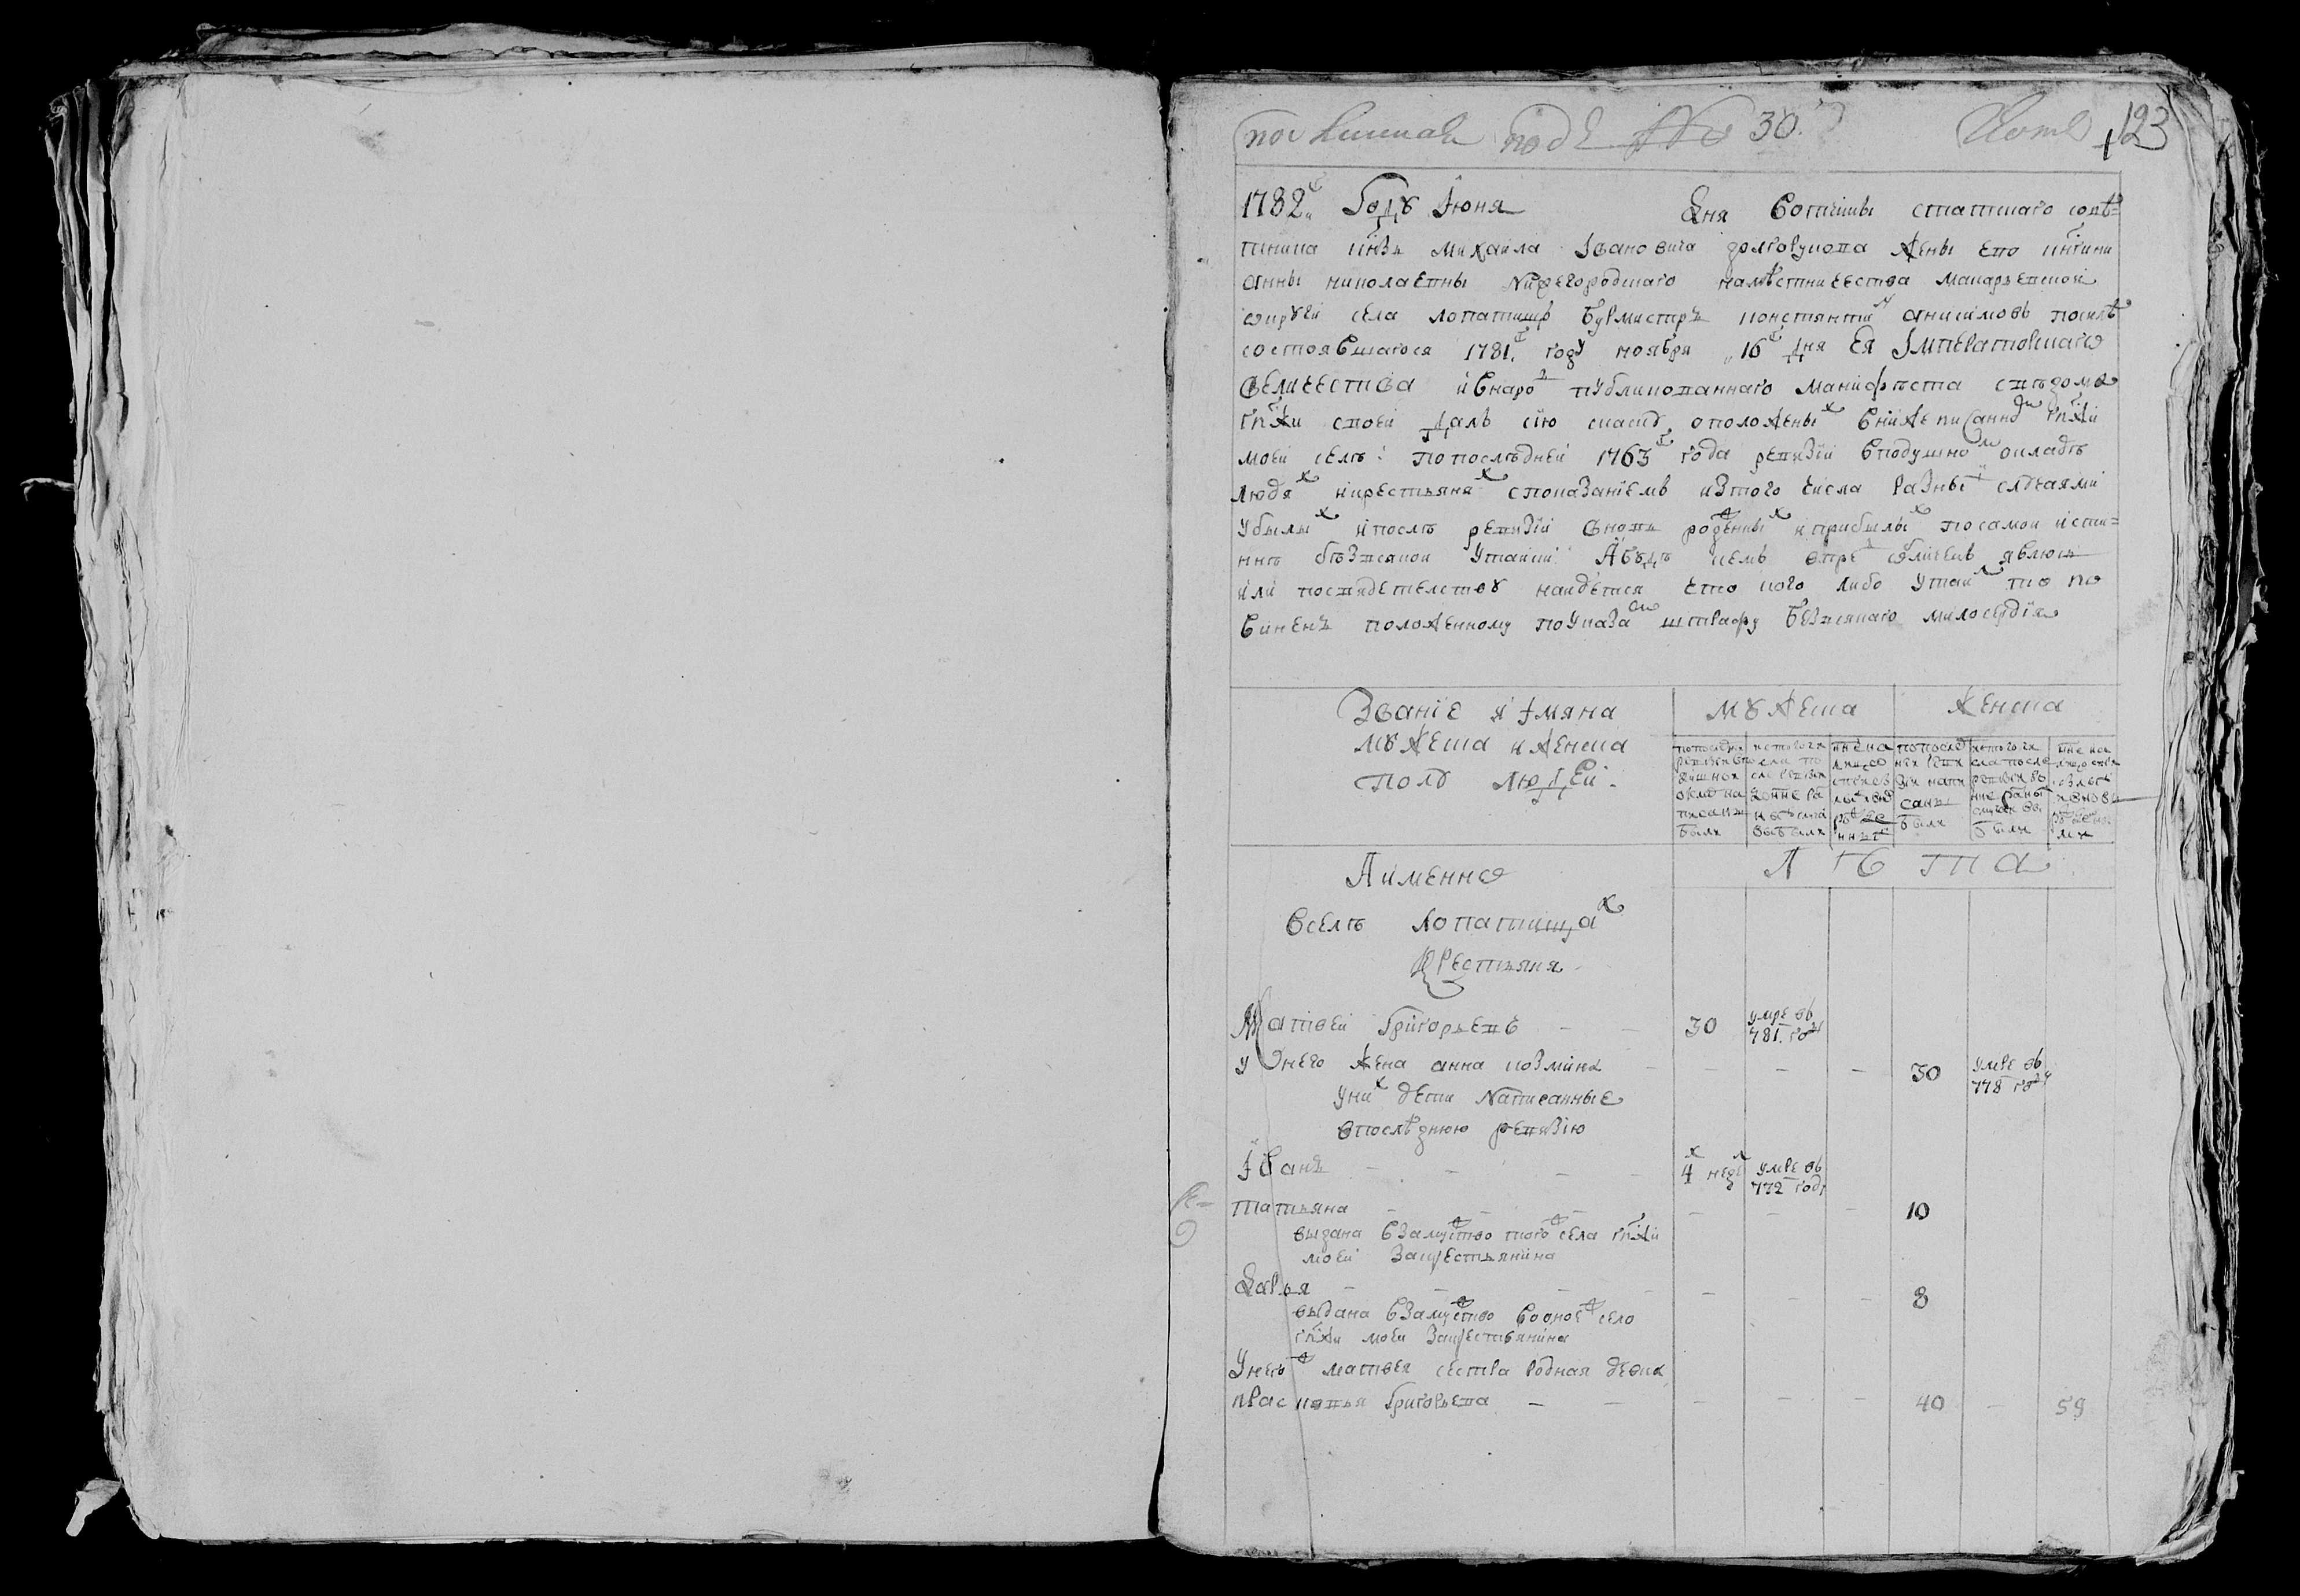 под № 30. 123
1782 г Году Июня Дня Вотчины статскаго совѣт=
ника князь Михаила Ивановича Долгорукова жены ево княгини
Анны Николаевны Нижегородскаго намѣстничества Макарьевской
округи села Лопатищъ бурмистръ Констянтин Анисимовъ посилѣ
состоявшагося 1781 г году ноября 16 г дня Ея Императорскаго
Величества и внарод публикованнаго манифеста сведома
гпжи своей далъ сию скаску о положеных внижеписанном гпжи
моей селе: попоследней 1763 г года ревизии вподушном окладе
людях и крестьянях споказаниемъ изтого числа разными случаями
убылых и после ревизии вновь рожденных и прибылых посамой исти=
не безвсякой утайки. А буде кемъ впред обличенъ явлюсь
или посвидетелству найдется что кого либо утаил то по
винен положенному поуказам штрафу безвсякаго милосердия
Звание и имяна
мужеска и женска
полу людей.
мужеска женска
попоследней ревизии вподушной оклад написаны были
ис того числа после ревизии разные выбыли
попоследней ревизии написаны были
ис того числа после ревизии выбыли
Лѣта
А имянно
Вселе Лопатищах
Крестьяня
Матвей Григорьевъ — — 30 умре въ 781. год
У него жена Анна Козмина — — — — 30 умре въ 778 году
У них дети написанные
впослѣднюю ревизию
Иванъ — — — — 4 х недел умре въ 772 году
Татьяна — — — — — — 10
выдана взамужство того ж села гпжи
моей закрестьянина
Дарья — — — — — — — 8
выдана взамужство водно ж село
гпжи моей закрестьянина
У него ж Матвея сестра родная девка
Прасковья Григорьева — — — — — 40 — 59